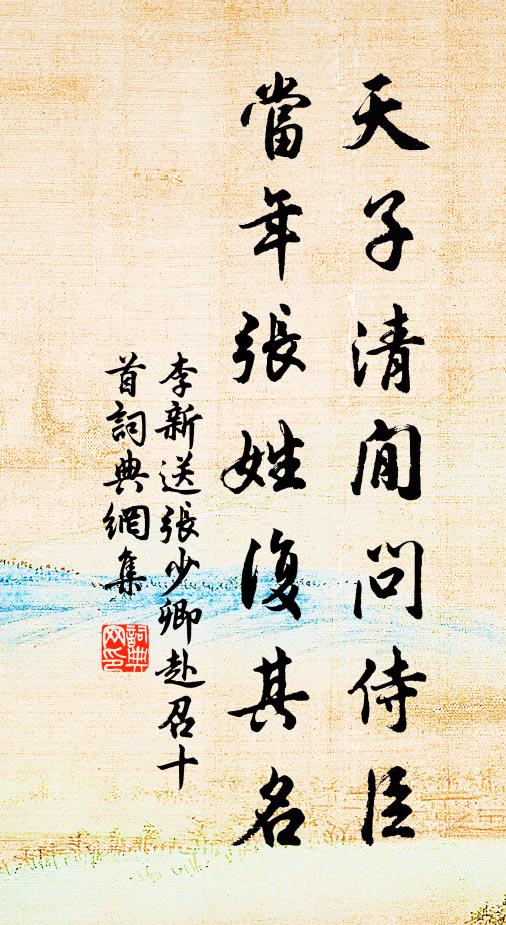 天子清閒問侍臣
當年張姓復其名
李新送張少卿赴召十
首詞典網集
詞典
网印